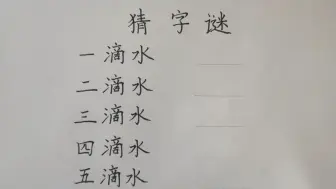 猜字谜
一滴水
二滴水
三滴水
四滴水
五滴水